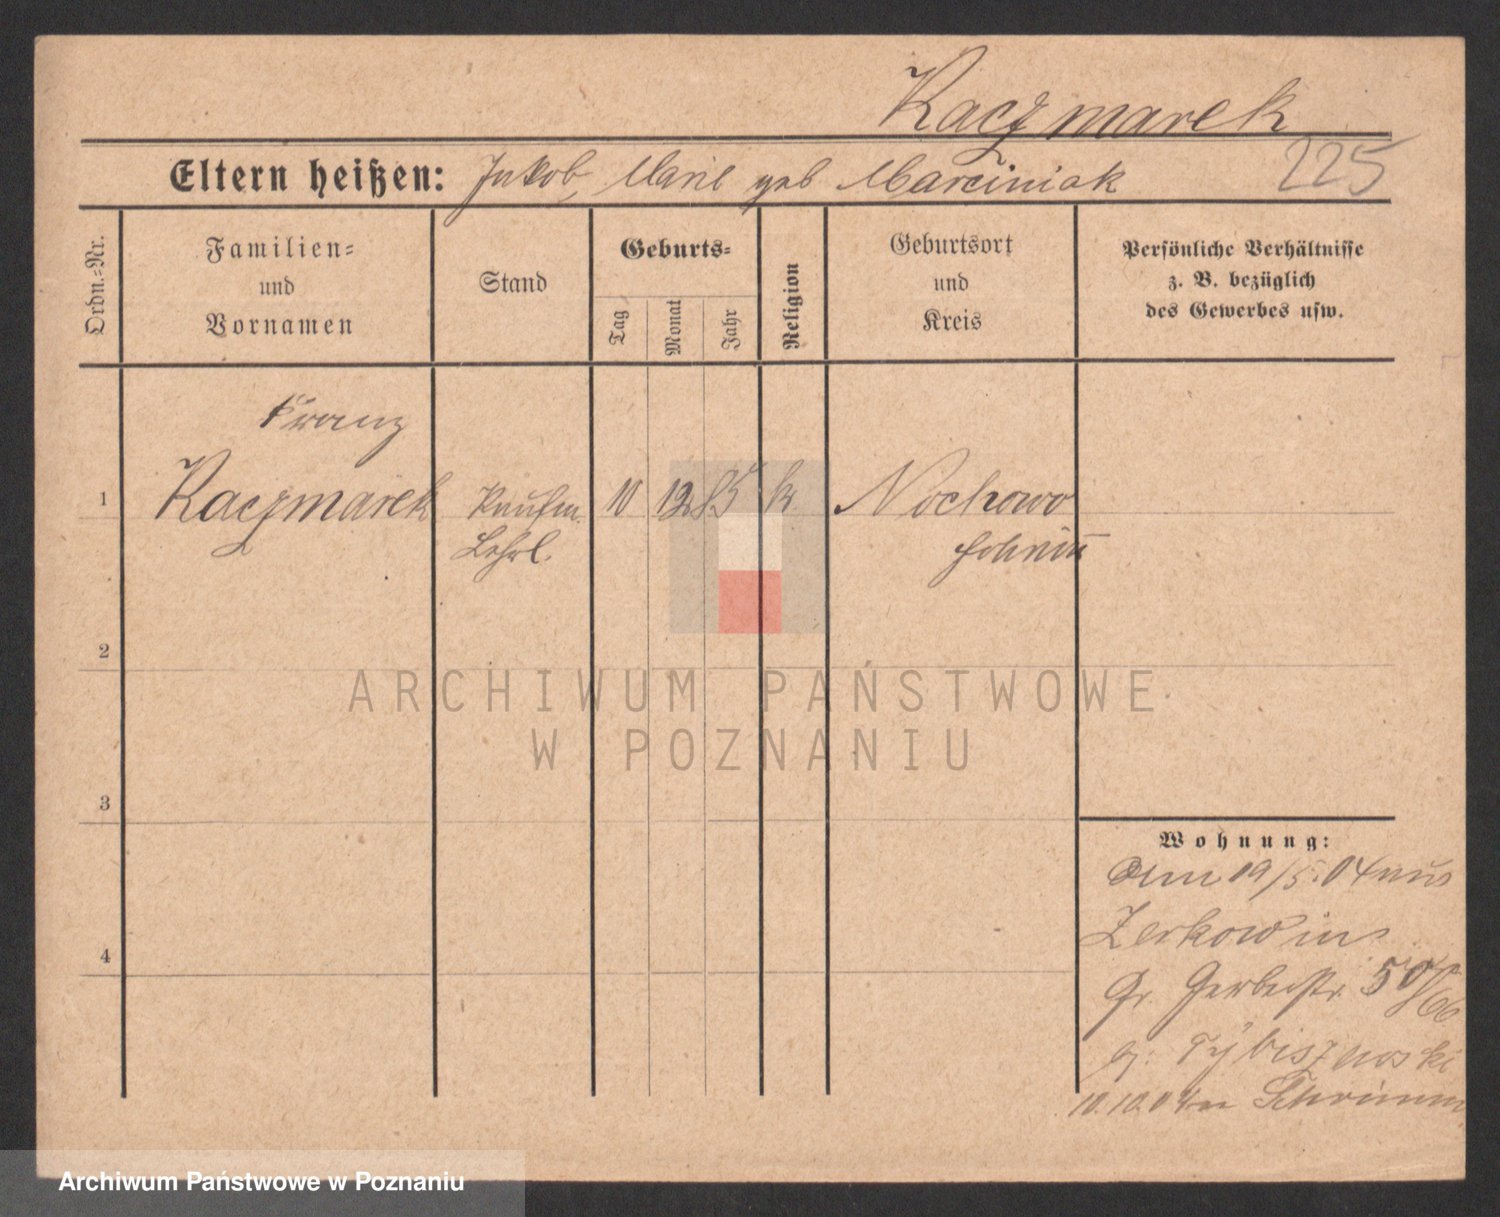 Kaczmarek
Eltern heißen: Jakob, Marie geb Marciniak
225
Ordn.-Nr.
Familien-
und
Vornamen
Stand
Geburts-
Tag
Monat
Jahr
Religion
Geburtsort
und
Kreis
Persönliche Verhältnisse
z. B. bezüglich
des Gewerbes usw.
Franz
1 Kaczmarek Kaufm. 10 12 85 k. Nochowo
Lehrl.
2
ARCHIWUM PAŃSTWOWE
W POZNANIU
3
Wohnung:
19/5.04 aus
4
Zerkow in
Gr. Gerberstr. 50/
10.10.04 n Schrimm
Archiwum Państwowe w Poznaniu